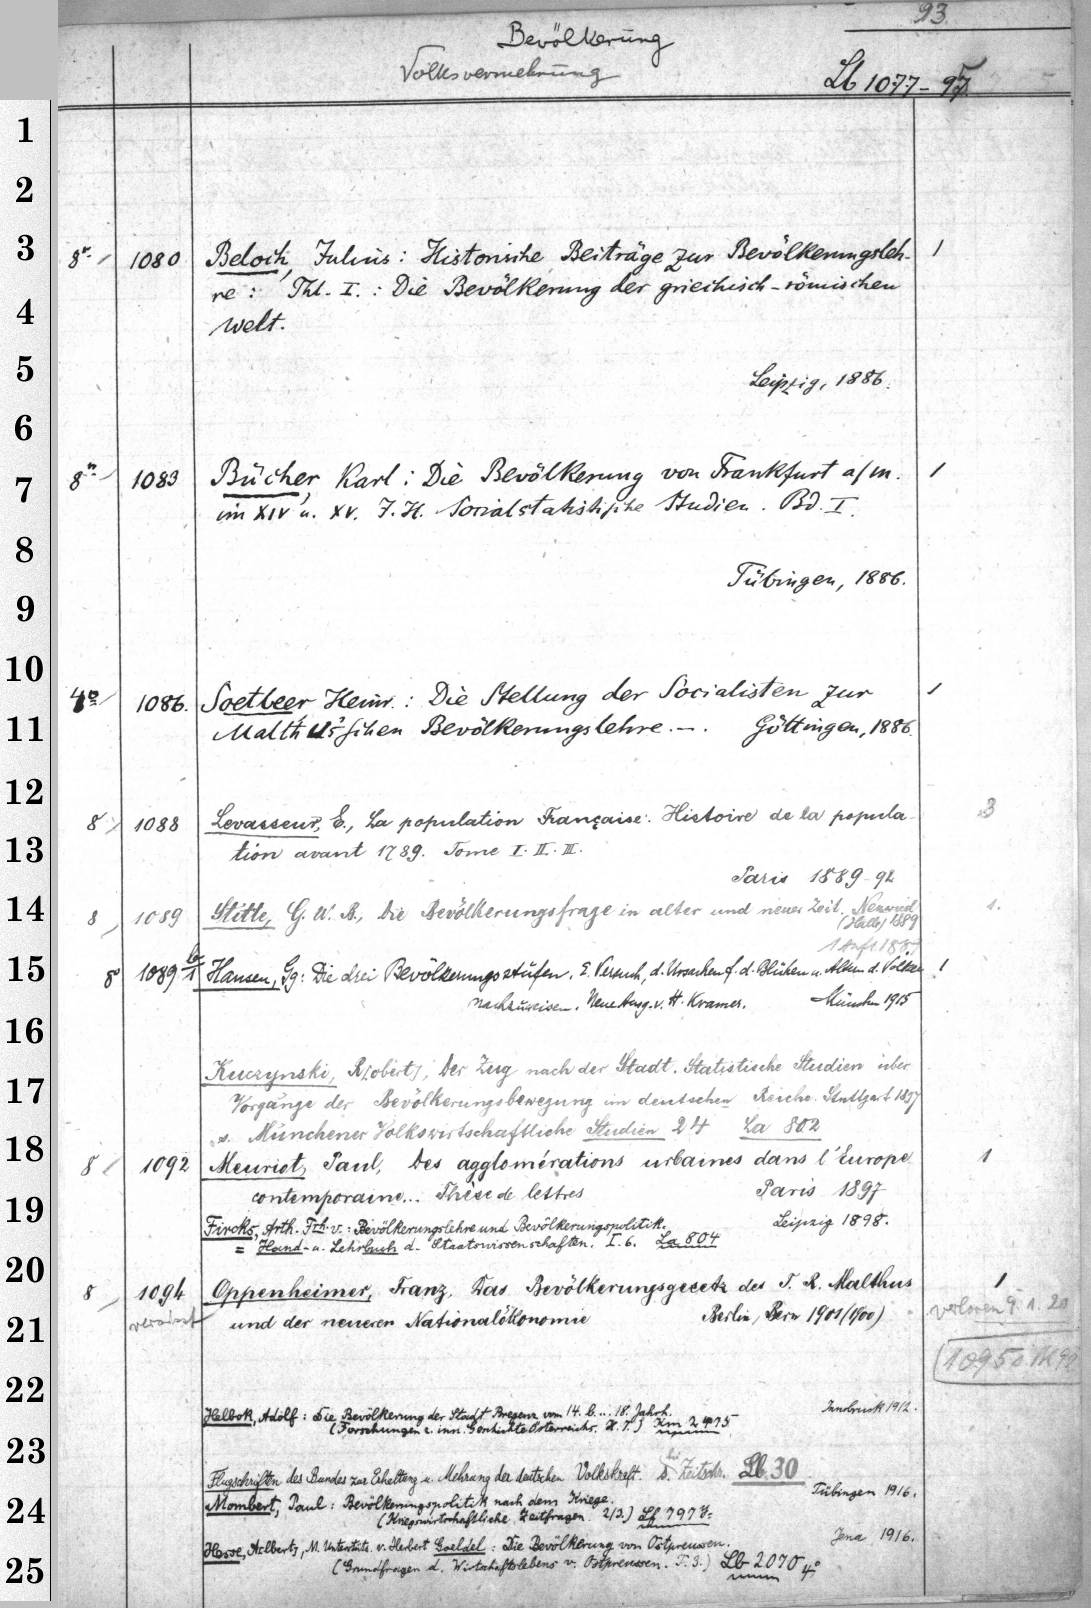 93
Bevölkerung
Volksvermehrung
Lb 1077-97
1
2
3
8° 1080 Beloch, Julius: Historische Beiträge zur Bevölkerungsleh- 1
re: Thl. I.: Die Bevölkerung der griechisch-römischen
4
Welt.
5
Leipzig, 1886.
6
7
8° 1083 Bücher, Karl: Die Bevölkerung von Frankfurt a/M. 1
im XIV u. XV. J. H. Socialstatistische Studien. Bd. I.
8
Tübingen, 1886.
9
10
4° 1086. Soetbeer Heinr.: Die Stellung der Socialisten zur 1
11
Malthus'schen Bevölkerungslehre. -. Göttingen, 1886.
12
8 1088 Levasseur, E., La population Française: Histoire de la popula- 3
13
tion avant 1789. Tome I. II. III.
Paris 1889-92
14
8 1089 Stille, G. W. B., Die Bevölkerungsfrage in alter und neuer Zeit. Neuwied 1.
(Halle) 1889
15
8° 1089 b/1 Hansen, Gg: Die drei Bevölkerungsstufen. E. Versuch, d. Ursachen f. d. Blühen u. Altern d. Völker 1
nachzuweisen. Neue Ausg. v. H. Kramer. München 1915
16
Kuczynski, R[obert], Der Zug nach der Stadt. Statistische Studien über
17
Vorgänge der Bevölkerungsbewegung im deutschen Reiche. Stuttgart 1897
s. Münchener Volkswirtschaftliche Studien 24 La 802
18
8 1092 Meuriot, Paul, Des agglomérations urbaines dans l'Europe 1
contemporaine... Thèse de lettres Paris 1897
19
Fircks, Arth. Frh. v.: Bevölkerungslehre und Bevölkerungspolitik. Leipzig 1898.
= Hand- u. Lehrbuch d. Staatswissenschaften. I. 6. La 804
20
8 1094 Oppenheimer, Franz, Das Bevölkerungsgesetz des T. R. Malthus 1
und der neueren Nationalökonomie Berlin, Bern 1901 (1900) verloren 9. 1. 20
21
22
Helbok, Adolf: Die Bevölkerung der Stadt Bregenz vom 14. b... 18. Jahrh. Innsbruck 1912.
(Forschungen z. inn. Geschichte Österreichs. H. 7.) Km 2475
23
Flugschriften des Bundes zur Erhaltung u. Mehrung der deutschen Volkskraft. s. bei Zeitschr. Lb 30
24
Mombert, Paul: Bevölkerungspolitik nach dem Kriege. Tübingen 1916.
(Kriegswirtschaftliche Zeitfragen. 2/3.) Lf 797
Hesse, Albert, M. Unterstütz. v. Herbert Goeldel: Die Bevölkerung von Ostpreussen. Jena 1916.
25
(Grundfragen d. Wirtschaftslebens v. Ostpreussen. T. 3.) Lb 2070 4°